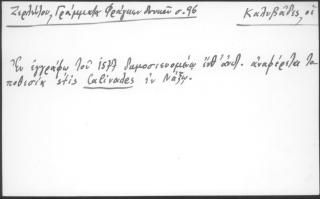 Ζερλέντου, Γράμματα Φράγκων Δουκῶν σ. 96
Καλυβᾶδες, οἱ
Ἐν ἐγγράφῳ τοῦ 1577 δημοσιευομένῳ ἔνθ' ἀνωτ. ἀναφέρεται το
ποθεσία στὶς Calivades ἐν Νάξῳ.